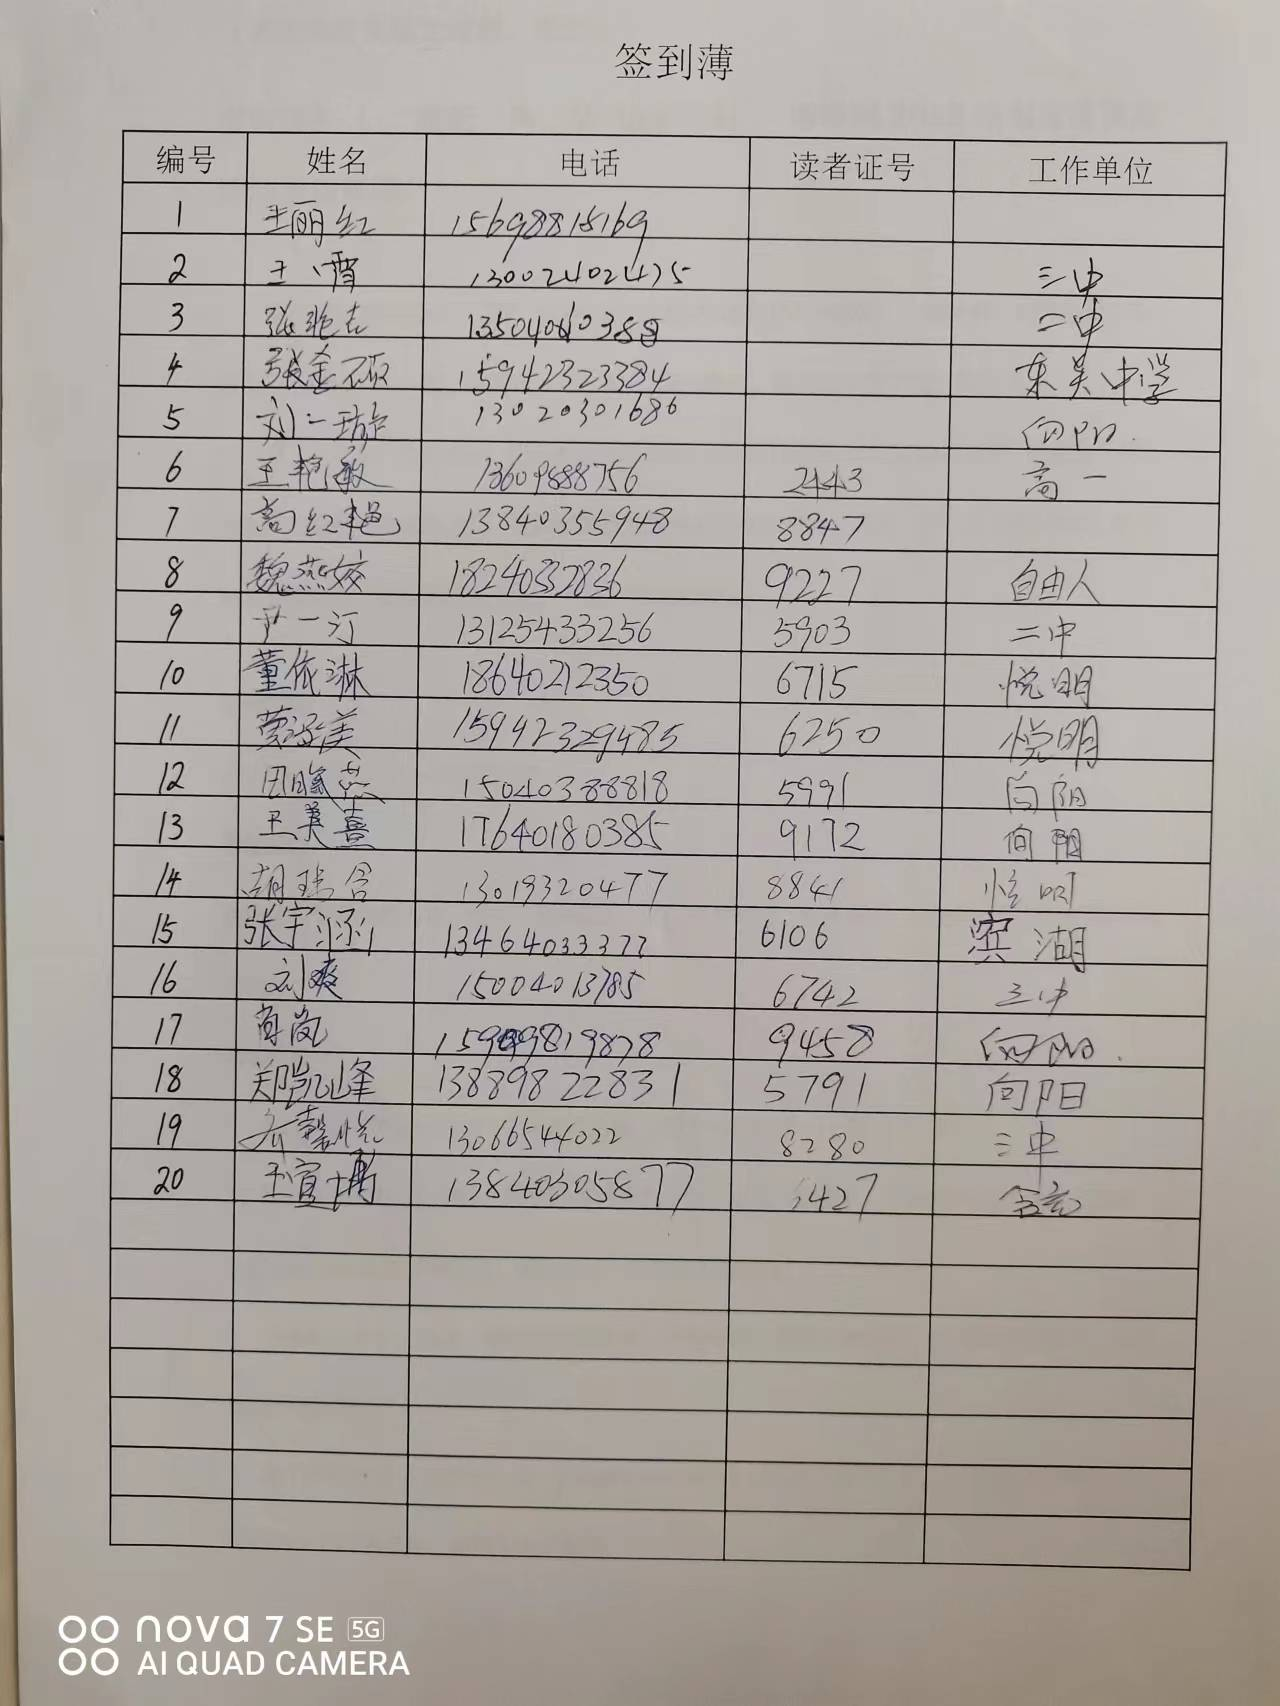 签到薄
编号 姓名 电话 读者证号 工作单位
1 王丽红 15698815169
2 王霄 13002402475 三中
3 张艳 二中
4 张 15942323384 东吴中学
5 刘一璇 13020301686 向阳
6 王艳敏 13609888756 2443 高一
7 高红艳 13840355948 8847
8 魏燕姣 18240332836 9227 自由人
9 尹一汀 13125433256 5903 二中
10 董依淋 18640212350 6715 悦明
11 美 15942329485 6250 悦明
12 田 燕 15040388818 5991 向阳
13 王美熹 17640180385 9172 向阳
14 胡瑞含 13019320477 8841 悦明
15 张宇涵 13464033377 6106 滨湖
16 刘爽 15004013785 6742 三中
17 肖岚 9458 向阳
18 郑凯峰 13889822831 5791 向阳
19 齐馨悦 13066544022 8280 三中
20 王宣 13840305877 427
nova 7 SE 5G
AI QUAD CAMERA